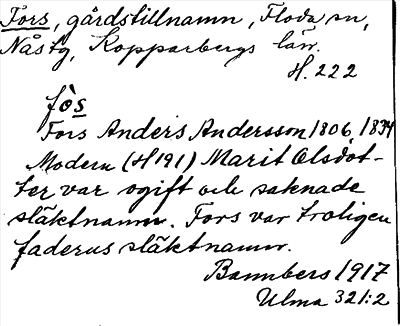 Fors, gårdstillnamn, Floda sn,
Nås tg, Kopparbergs län.
H. 222
fò̀s
Fors Anders Andersson 1806, 1834
Modern (H 191) Marit Olsdot-
ter var ogift och saknade
släktnamn. Fors var troligen
faderns släktnamn.
Bannbers 1917
Ulma 321:2